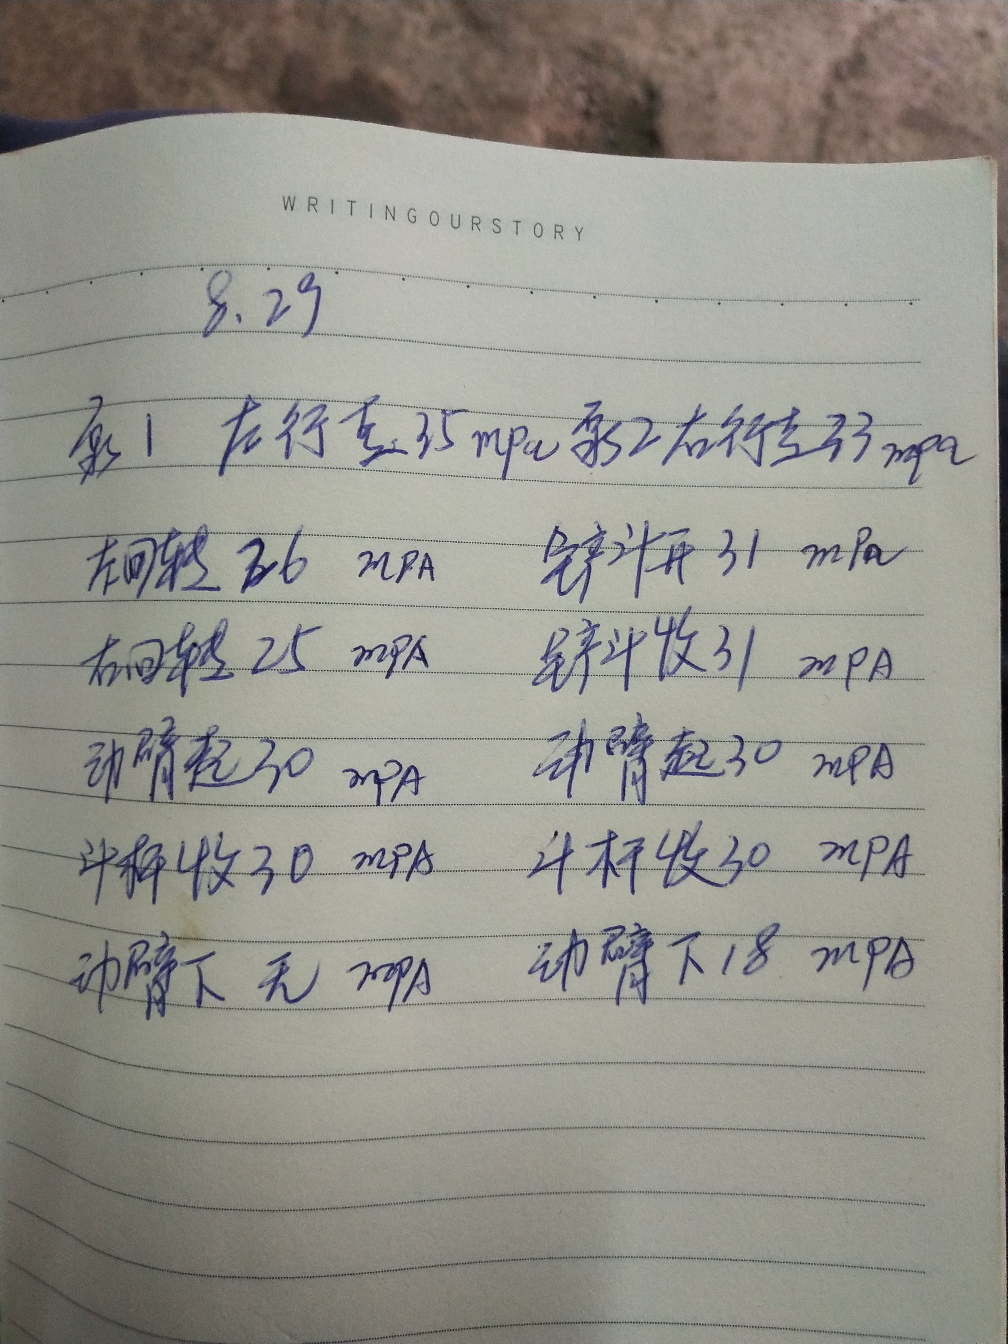 WRITINGOURSTORY
8.29
泵1 左行走35mpa 泵2右行走33mpa
左回转 26 MPA 铲斗开31 mPa
右回转 25 MPA 铲斗收31 MPA
动臂起30 MPA 动臂起30 MPA
斗杆收30 MPA 斗杆收30 MPA
动臂下 无 MPA 动臂下18 MPA